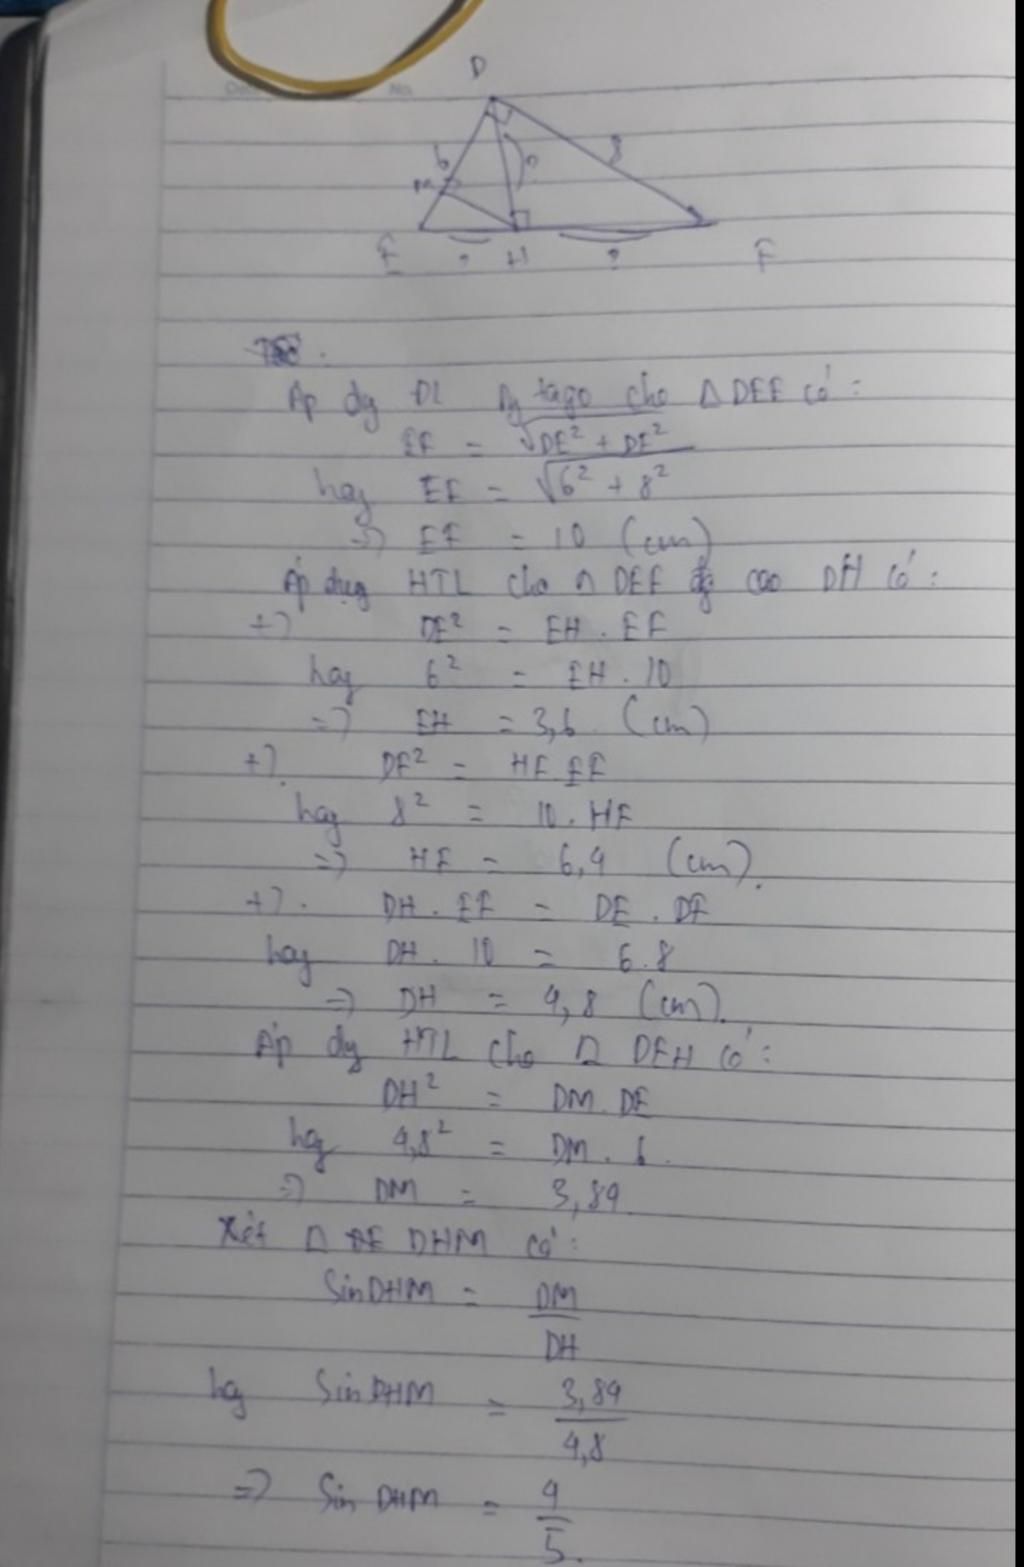 D
6
8
M
?
E
?
H
?
F
Áp dg ĐL Pytago cho Δ DEF có:
EF = √DE² + DF²
hay EF = √6² + 8²
=> EF = 10 (cm)
Áp dụng HTL cho Δ DEF đg cao DH có:
+) DE² = EH . EF
hay 6² = EH . 10
=> EH = 3,6 (cm)
+) DF² = HF . EF
hay 8² = 10 . HF
=> HF = 6,4 (cm).
+) DH . EF = DE . DF
hay DH . 10 = 6.8
=> DH = 4,8 (cm).
Áp dg HTL cho Δ DEH có:
DH² = DM . DE
hay 4,8² = DM . 6.
=> DM = 3,84
Xét Δ DHM có:
Sin DHM = DM
DH
hay Sin DHM = 3,84
4,8
=> Sin DHM = 4
5.